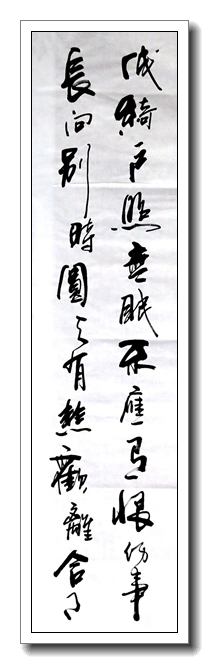 低綺戶照無眠不應有恨何事
長向别時圓人有悲歡離合月